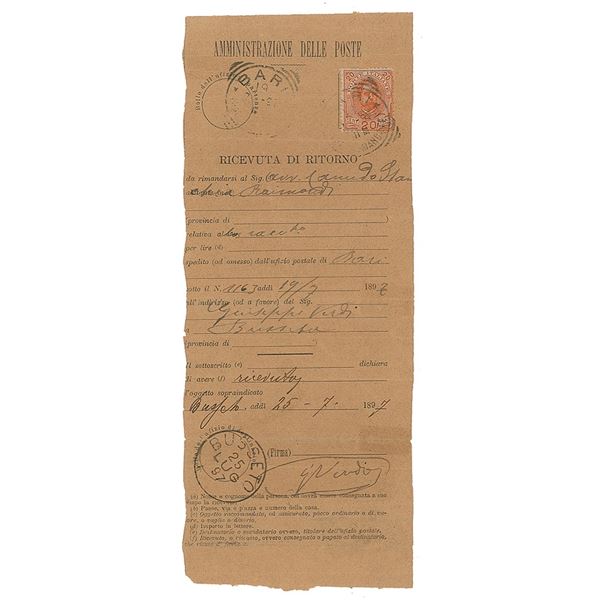 AMMINISTRAZIONE DELLE POSTE
Bollo dell'ufizio
BARI
20 20
RICEVUTA DI RITORNO
da rimandarsi al Sig. (avv.
Raimondi
provincia di
relativa al
per lire (d)
spedito (od omesso) dall'ufizio postale di Bari
sotto il N. 1163 addì 19/7 1897
all'indirizzo (od a favore) del Sig.
Giuseppe Verdi
a Busseto
provincia di
Il sottoscritto (e) dichiara
di avere (f) ricevuto
l'oggetto sopraindicato
addì 25 - 7 - 1897
BUSSETO
25
LUG
97
(Firma)
G Verdi
(a) Nome e cognome della persona, cui dovrà essere consegnata a suo
tempo la ricevuta.
(b) Paese, via o piazza e numero della casa.
(c) Oggetto raccomandato, od assicurato, pacco ordinario o di valore,
o vaglia o directo.
(d) Importo in lettere.
(e) Destinatario o mandatario ovvero, titolare dell'ufizio postale.
(f) Ricevuto, o riscosso, ovvero consegnato o pagato al destinatario,